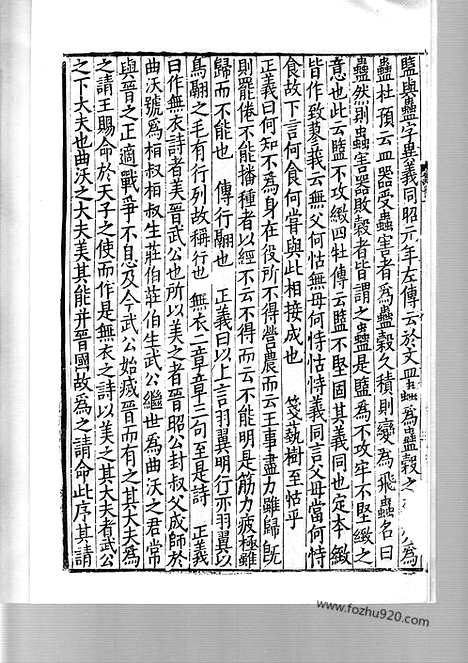 盬與蠱字異義同昭元年左傳云於文皿蟲為蠱穀之 為
蠱杜預云皿器受蟲害者為蠱穀久積則變為飛蟲名曰
蠱然則蟲害器敗穀者皆謂之蠱是盬為不攻牢不堅緻之
意也此云盬不攻緻四牡傳云盬不堅固其義同也定本緻
皆作致蓼義云無父何怙無母何恃怙恃義同言父母當何恃
食故下言何食何嘗與此相接成也 箋蓺樹至怙乎
正義曰何知不為身在役所不得營農而云王事盡力雖歸旣
則罷倦不能播種者以經不云不得而云不能明是筋力疲極雖
歸而不能也 傳行翮也 正義曰以上言羽翼明行亦羽翼以
鳥翮之毛有行列故稱行也 無衣二章章三句至是詩 正義
曰作無衣詩者美晉武公也所以美之者晉昭公封叔父成師於
曲沃號為桓叔桓叔生莊伯莊伯生武公繼世為曲沃之君常
與晉之正適戰爭不息及今武公始滅晉而有之其大夫為
之請王賜命於天子之使而作是無衣之詩以美之其大夫者武公
之下大夫也曲沃之大夫美其能并晉國故為之請命此序其請
www.fozhu920.com